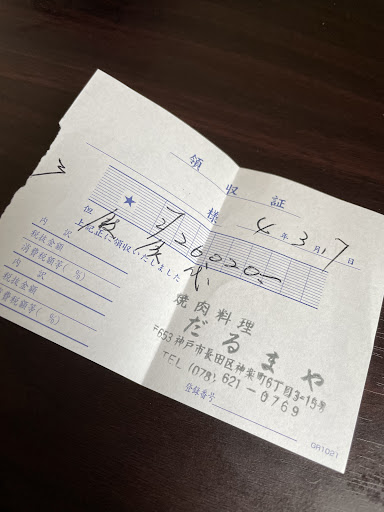 領 収 証
様
4年3月17日
★ ¥26020-
但 飲食代
上記正に領収いたしました
内 訳
税抜金額
消費税額等( %)
内 訳
税抜金額
消費税額等( %)
焼肉料理
だるまや
〒653 神戸市長田区神楽町6丁目3-15号
TEL (078) 621-0769
登録番号
GR1021